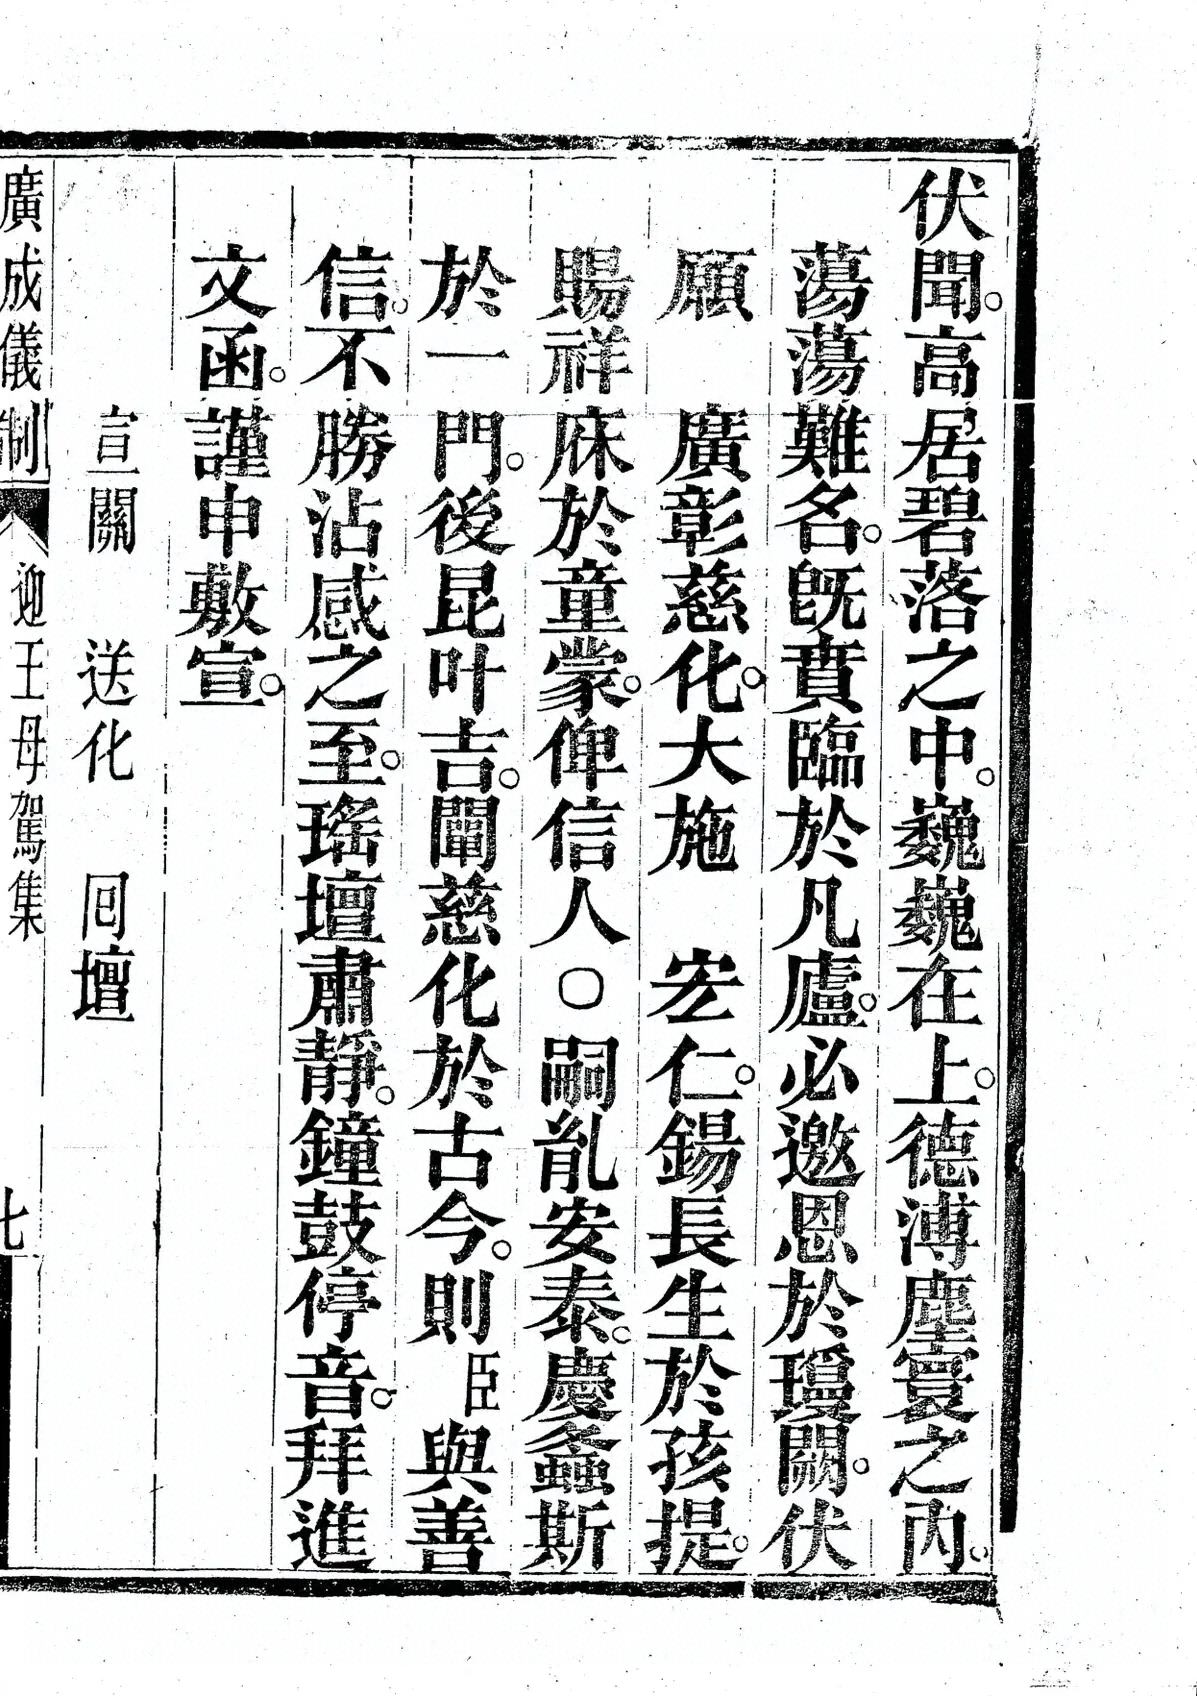 伏聞。高居碧落之中。巍巍在上。德溥塵寰之內。
蕩蕩難名。既賁臨於凡廬。必邀恩於瓊闕。伏
願　廣彰慈化。大施　宏仁。錫長生於孩提。
賜祥庥於童蒙。俾信人〇嗣胤安泰。慶螽斯
於一門。後昆叶吉。闡慈化於古今。則臣與善
信。不勝沾感之至。瑤壇肅靜。鐘鼓停音。拜進
文函。謹申敷宣。
宣關　送化　回壇
廣成儀制　迎王母駕集　七